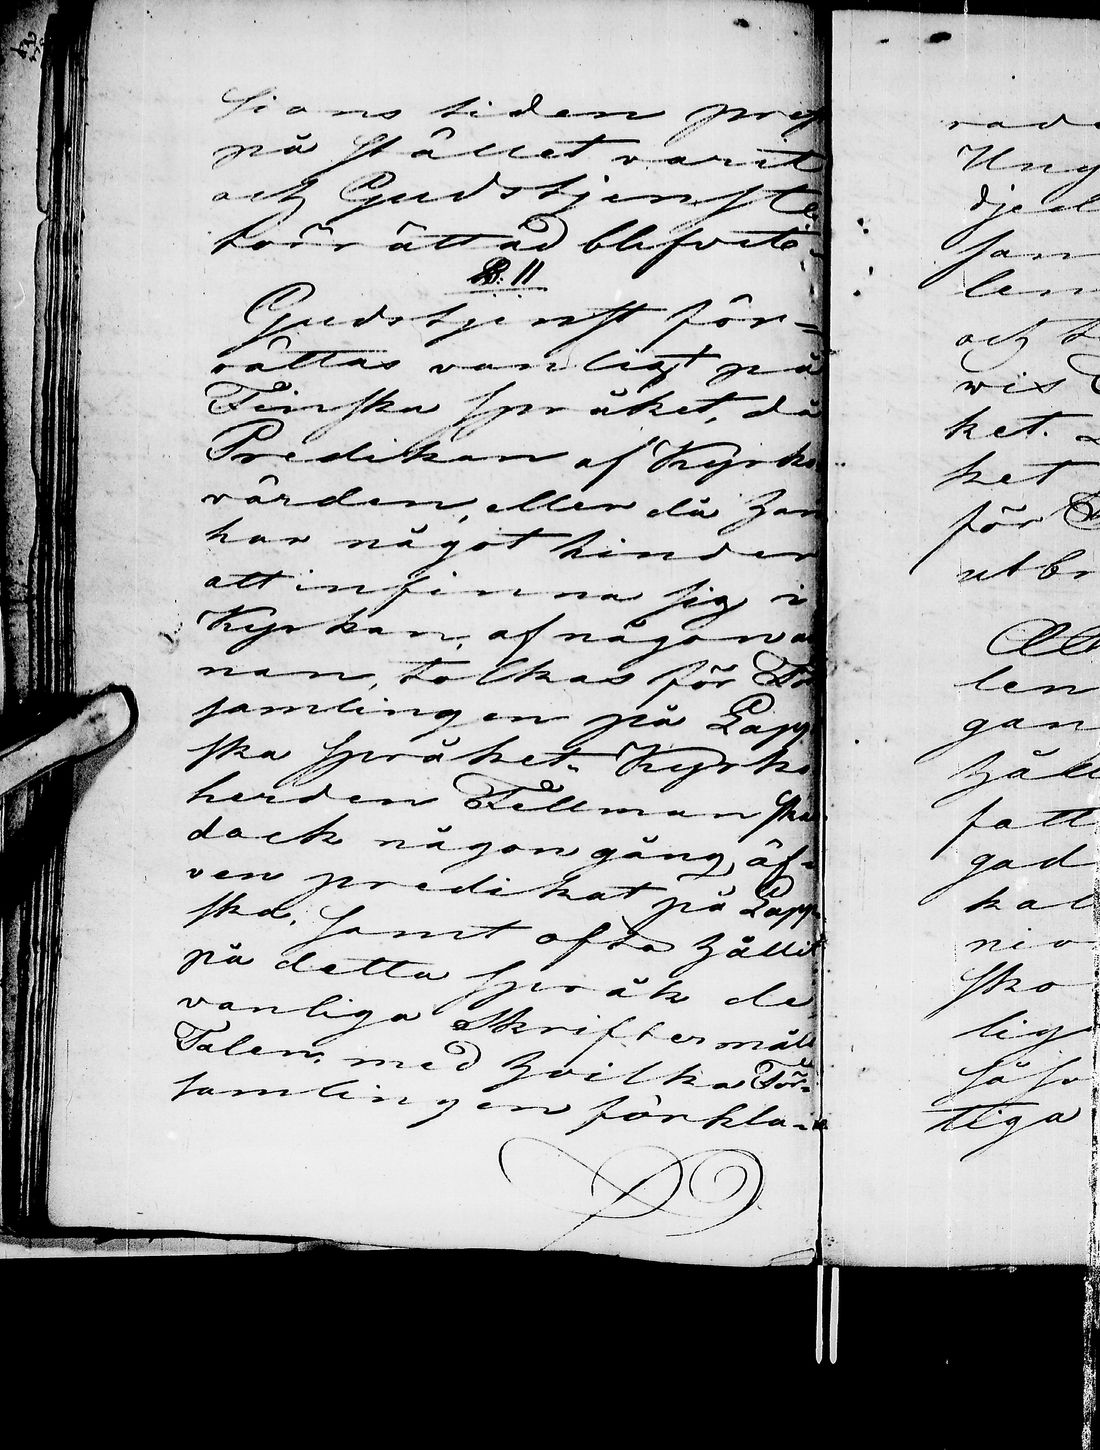 sions tiden prest
på stället varit
och Gudstjenste
förrättad blifvit.
§. 11
Gudstjenst för=
rättas vanligt på
Finska Språket, då
Predikan af Kyrko
värden, eller då han
har något hinder
att infinna sig i
Kyrkan, af någon an
nan, tolkas för För
samlingen på Lapp
ska Språket. Kyrko
herden Fellman ska
dock någon gång äf=
ven predikat på Lapp
ska, samt ofta hållit
på detta Språk de
vanliga Skriftermåls
Talen, med hvilka För=
samlingen förkla=
rade
Ung
djel
sam
len
och
wis
ket.
ket
för
utbr
All
len
gan
håll
fatt
gad
kal
nio
sko
lig
såso
tiga